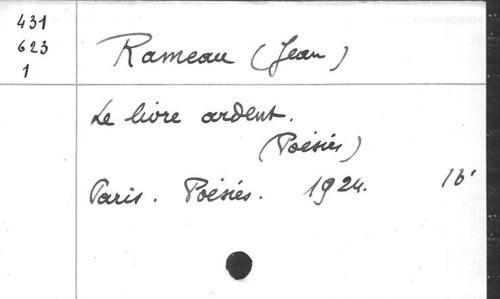 431
623
1
Rameau (Jean)
Le livre ardent.
(Poésies)
Paris. Poésies. 1924.